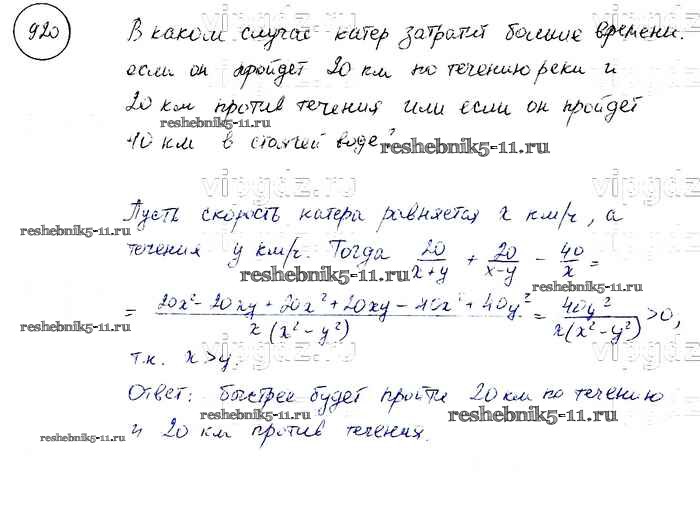 920
В каком случае катер затратит больше времени:
если он пройдет 20 км по течению реки и
20 км против течения или если он пройдет
40 км в стоячей воде?
reshebnik5-11.ru
reshebnik5-11.ru
vipgdz.ru
vipgdz.ru
Пусть скорость катера равняется x км/ч, а
reshebnik5-11.ru
течения y км/ч. Тогда 20/(x+y) + 20/(x-y) - 40/x =
reshebnik5-11.ru
reshebnik5-11.ru
= (20x² - 20xy + 20x² + 20xy - 40x² + 40y²)/(x(x² - y²)) = 40y²/(x(x² - y²)) > 0,
reshebnik5-11.ru
reshebnik5-11.ru
т.к. x > y.
vipgdz.ru
vipgdz.ru
Ответ: быстрее будет пройти 20 км по течению
reshebnik5-11.ru
reshebnik5-11.ru
и 20 км против течения.
reshebnik5-11.ru